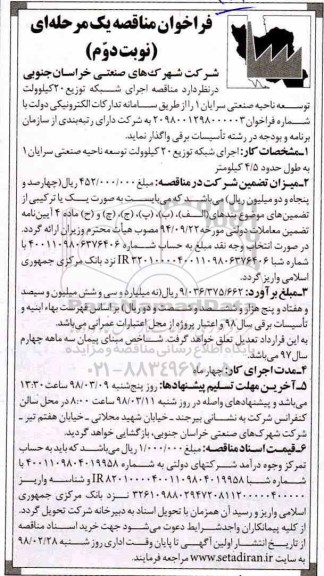 فراخوان مناقصه یک مرحله‌ای
(نوبت دوّم)
شرکت شهرک‌های صنعتی خراسان جنوبی
درنظردارد مناقصه اجرای شبکه توزیع ۲۰کیلوولت
توسعه ناحیه صنعتی سرایان ۱ را از طریق سامانه تدارکات الکترونیکی دولت با
شماره فراخوان ۲۰۹۸۰۰۱۲۹۸۰۰۰۰۰۳ به شرکت دارای رتبه‌بندی از سازمان
برنامه و بودجه در رشته تأسیسات برقی واگذار نماید.
۱ـ مشخصات کار: اجرای شبکه توزیع ۲۰ کیلوولت توسعه ناحیه صنعتی سرایان ۱
به طول حدود ۴/۵ کیلومتر
۲ـ میزان تضمین شرکت در مناقصه: مبلغ ۴۵۲/۰۰۰/۰۰۰ ریال (چهارصد و
پنجاه و دو میلیون ریال) می‌باشد که می‌بایست به صورت یک یا ترکیبی از
تضمین‌های موضوع بندهای (الف)، (ب)، (پ)، (ج)، (چ) و (ح) ماده ۴ آیین‌نامه
تضمین معاملات دولتی مورخه ۹۴/۰۹/۲۲ مصوب هیأت محترم وزیران ارائه گردد.
در صورت انتخاب وجه نقد مبلغ به حساب شماره ۴۰۰۱۱۰۹۸۰۶۳۷۶۴۰۶ با
شماره شبا IR ۳۲۰۱۰۰۰۰۴۰۰۱۱۰۹۸۰۶۳۷۶۴۰۶ نزد بانک مرکزی جمهوری
اسلامی واریز گردد.
۳ـ مبلغ برآورد: ۹/۰۳۶/۳۷۵/۶۶۲ ریال (نه میلیارد و سی و شش میلیون و سیصد
و هفتاد و پنج هزار و ششصد و شصت و دو ریال) بر اساس فهرست بهاء ابنیه و
تأسیسات برقی سال ۹۸ و اعتبار پروژه از محل اعتبارات عمرانی می‌باشد.
به این قرارداد تعدیل تعلق خواهد گرفت. شاخص مبنای پیمان سه ماهه چهارم
سال ۹۷ می‌باشد.
۴ـ مدت اجرای کار: چهار ماه
۵ـ آخرین مهلت تسلیم پیشنهادها: روز پنج‌شنبه ۹۸/۰۳/۰۹ ساعت ۱۳:۳۰
می‌باشد و پیشنهادهای واصله در روز شنبه ۹۸/۰۳/۱۱ ساعت ۸:۰۰ در محل سالن
کنفرانس شرکت به نشانی بیرجند ـ خیابان شهید محلاتی ـ خیابان هفتم تیر ـ
شرکت شهرک‌های صنعتی خراسان جنوبی، بازگشایی خواهد گردید.
۶ـ قیمت اسناد مناقصه: مبلغ ۱/۰۰۰/۰۰۰ ریال می‌باشد که باید به حساب
تمرکز وجوه درآمد شرکتهای دولتی به شماره ۴۰۰۱۱۰۹۸۰۴۰۱۹۹۵۸ با
شماره شبا IR ۸۲۰۱۰۰۰۰۴۰۰۱۱۰۹۸۰۴۰۱۹۹۵۸ و شناسه واریز
نزد بانک مرکزی جمهوری
اسلامی واریز و رسید آن همزمان با تحویل اسناد به دبیرخانه شرکت تحویل گردد.
از کلیه پیمانکاران واجدشرایط دعوت می‌شود جهت خرید اسناد مناقصه
از تاریخ انتشار اولین آگهی تا پایان وقت اداری روز شنبه ۹۸/۰۲/۲۸
به سایت www.setadiran.ir مراجعه فرمایند.